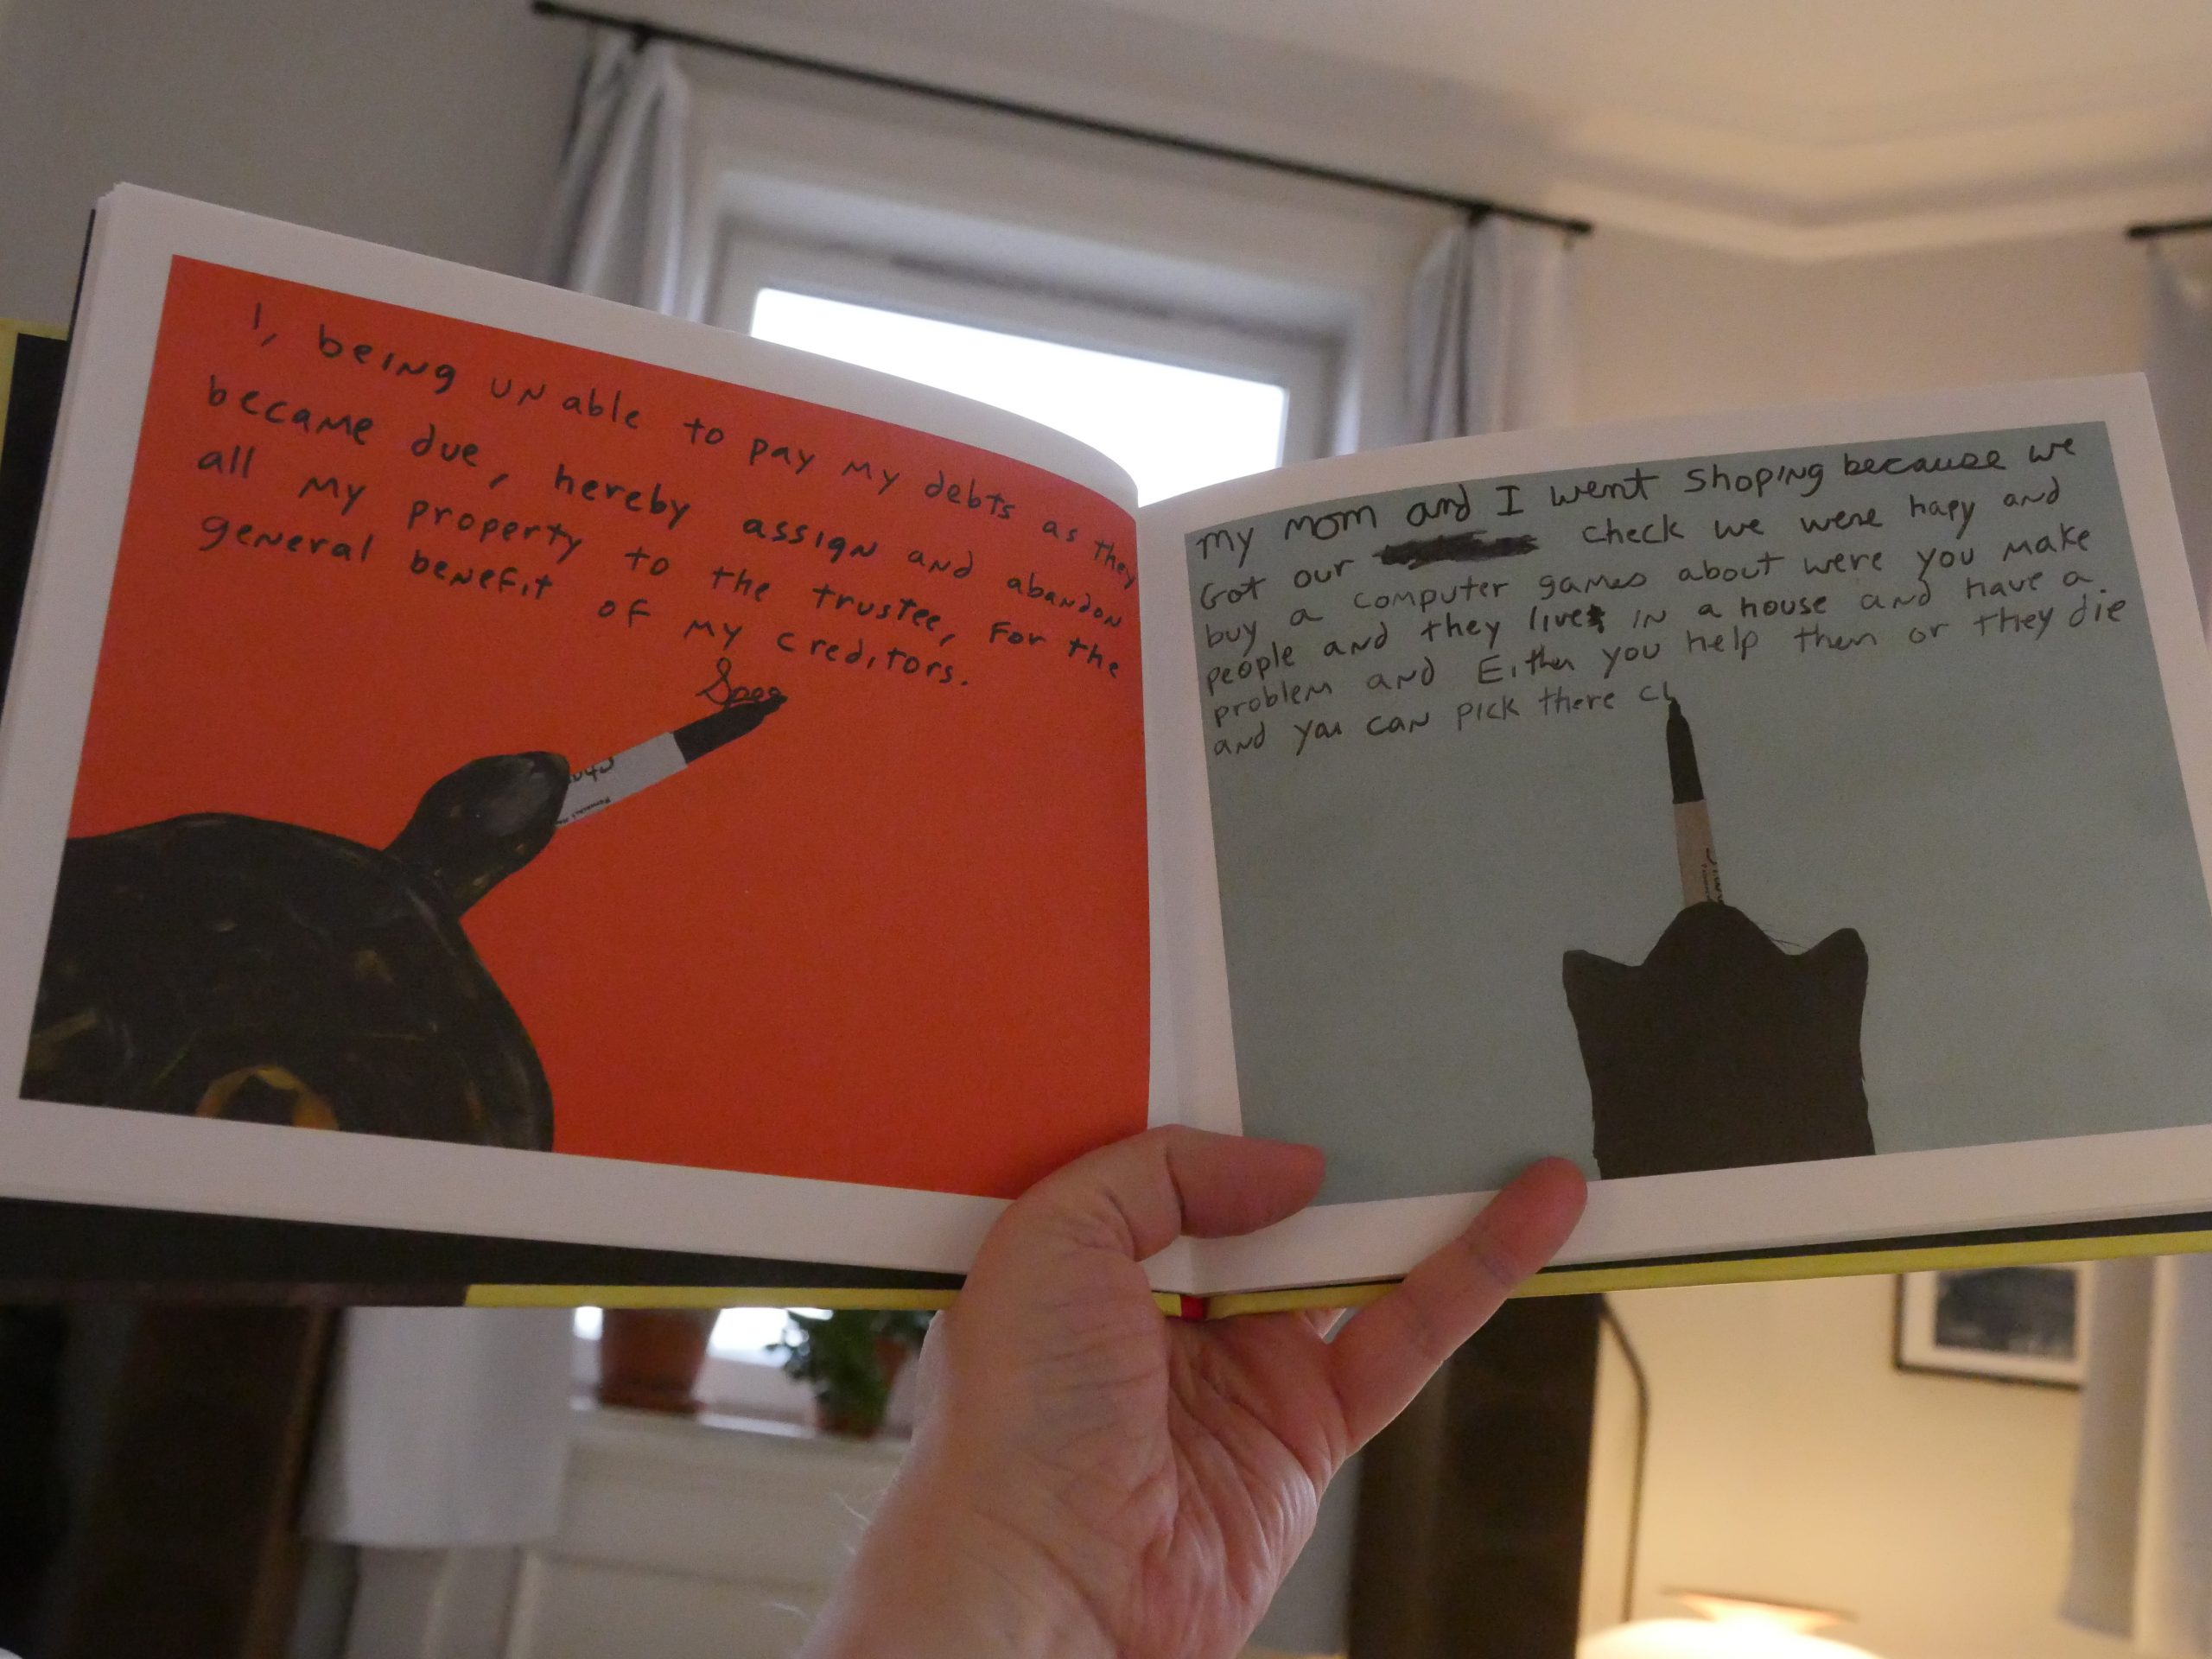 I, being unable to pay my debts as they
became due, hereby assign and abandon
all my property to the trustee, for the
general benefit of my creditors.
my mom and I went shoping because we
Got our check we were hapy and
buy a computer games about were you make
people and they live in a house and have a
problem and Either you help them or they die
and you can pick there